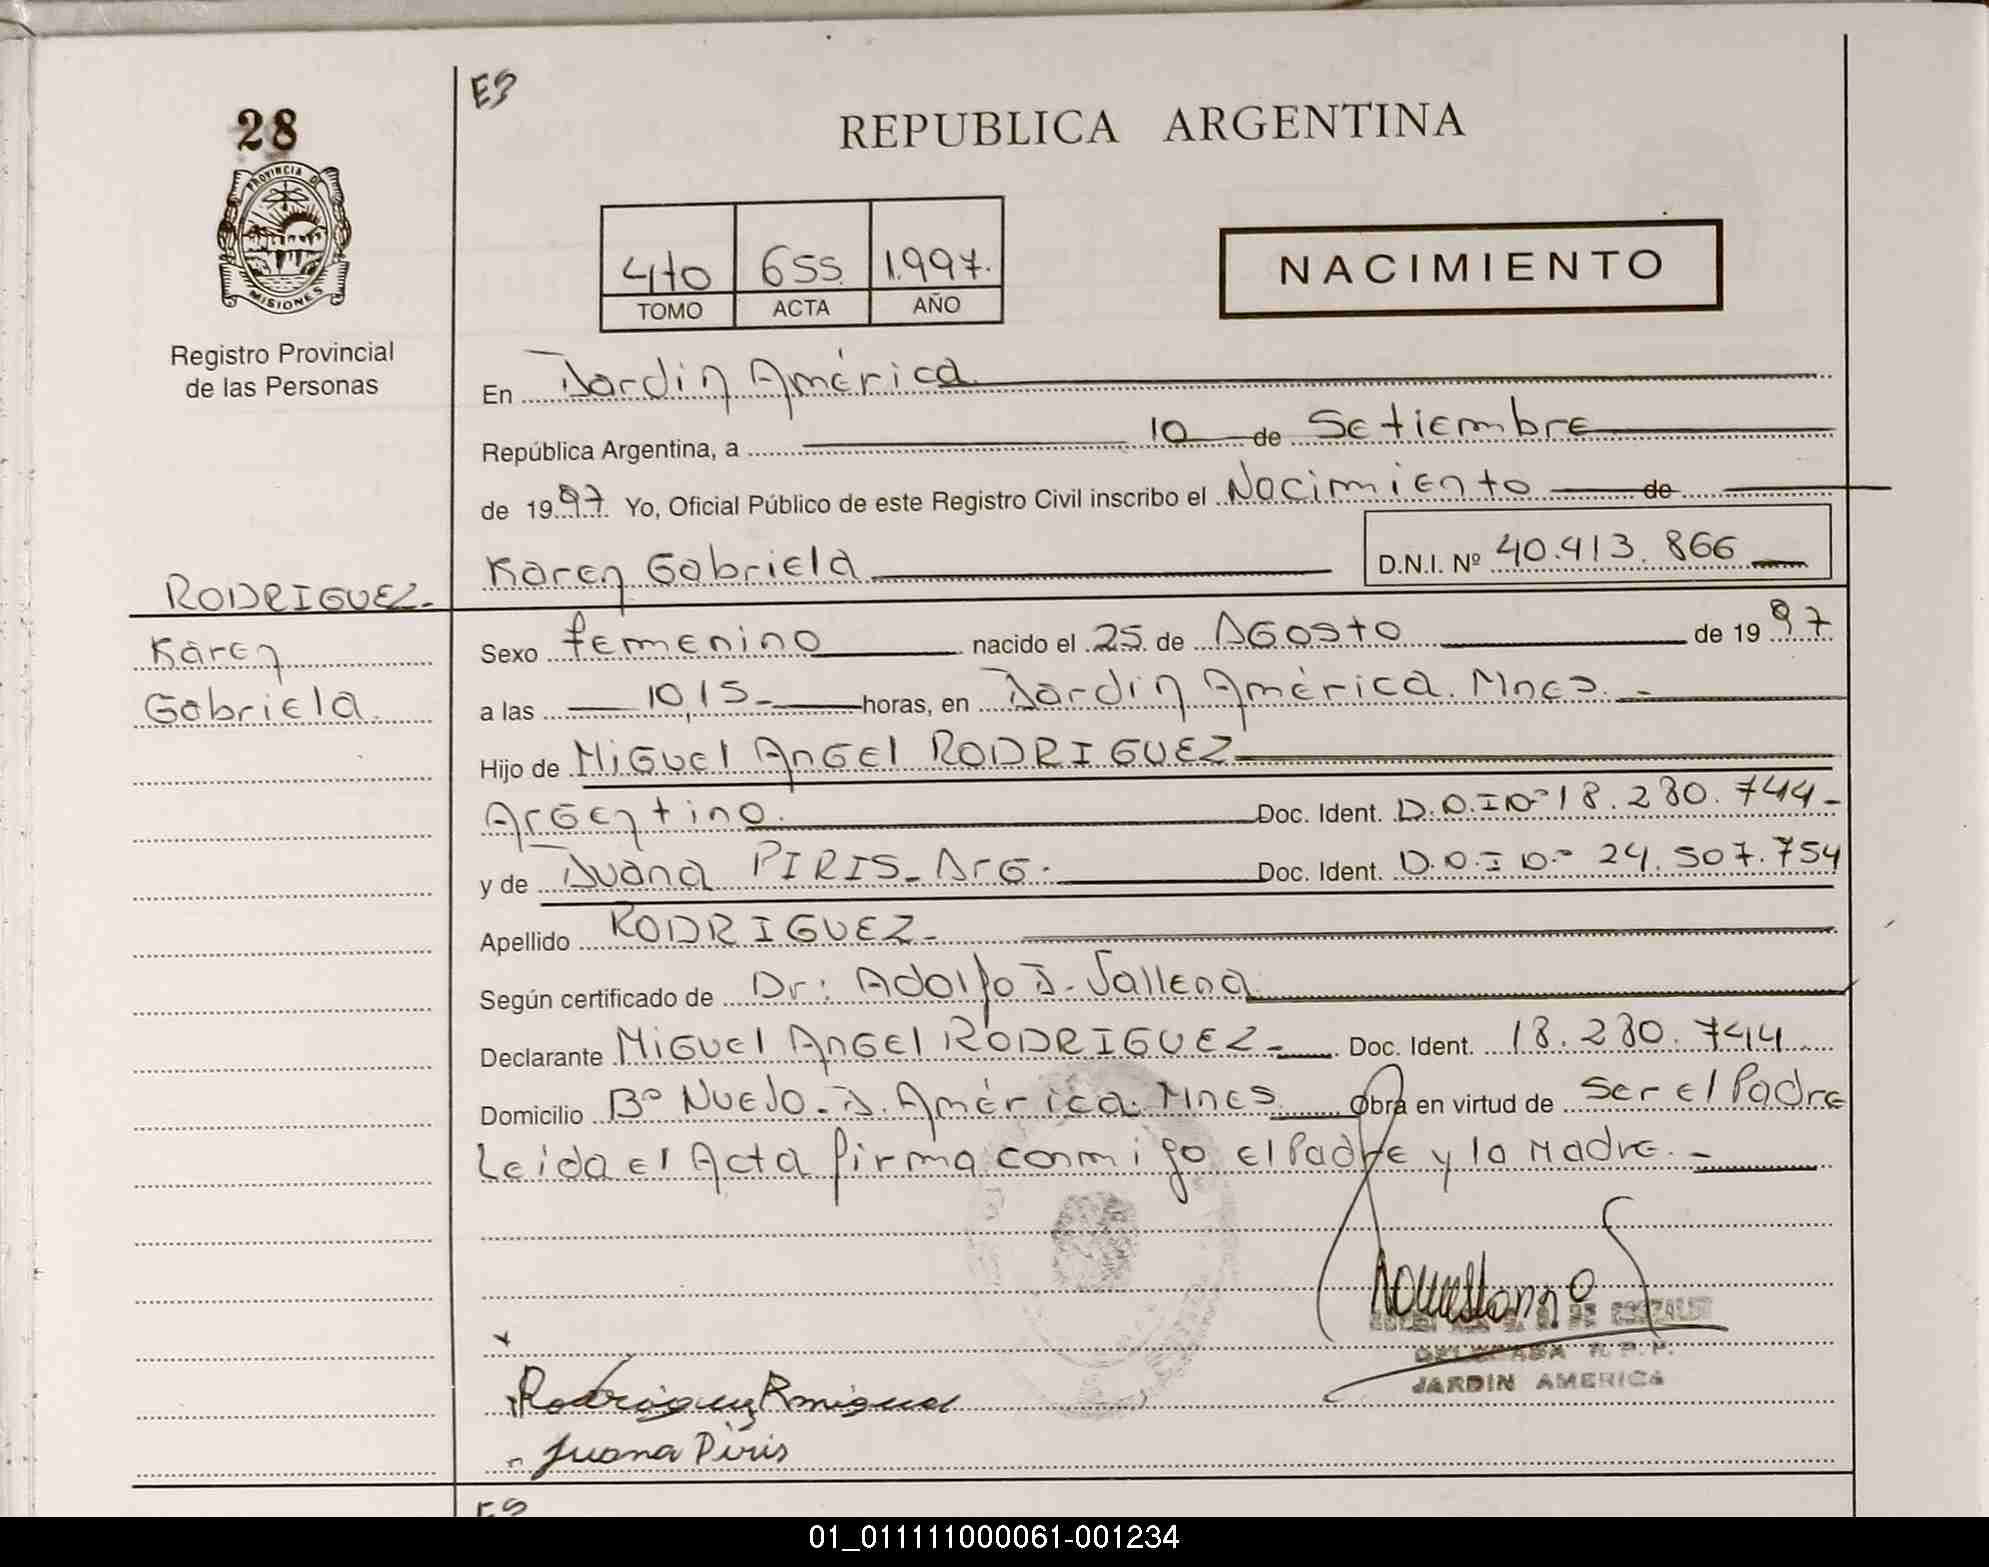 E9
28
REPUBLICA ARGENTINA
PROVINCIA D
MISIONES
Registro Provincial
de las Personas
4to 655 1.997.
TOMO ACTA AÑO
NACIMIENTO
En Jardin América
República Argentina, a 10 de Setiembre
de 1997. Yo, Oficial Público de este Registro Civil inscribo el Nacimiento de
Karen Gabriela D.N.I. Nº 40.413.866
RODRIGUEZ-
Karen
Gabriela
Sexo femenino nacido el 25 de AGosto de 1997
a las 10,15- horas, en Jardin América. Mnes.-
Hijo de MiGuel AnGEl RODRIGUEZ
ArGentino. Doc. Ident. 18.280.744-
y de Juana PIRIS- ArG. Doc. Ident. 24.507.754
Apellido RODRIGUEZ-
Según certificado de Dr: Adolfo J.
Declarante MiGuel AnGEl RODRIGUEZ- Doc. Ident. 18.280.744
Domicilio Bº Nuevo- J. América. Mnes Obra en virtud de Ser el Padre
Leida el Acta firma conmigo el Padre y la Madre.-
DELEGADA R.P.P.
JARDIN AMERICA
Rodriguez miguel
Juana Piris
01_011111000061-001234